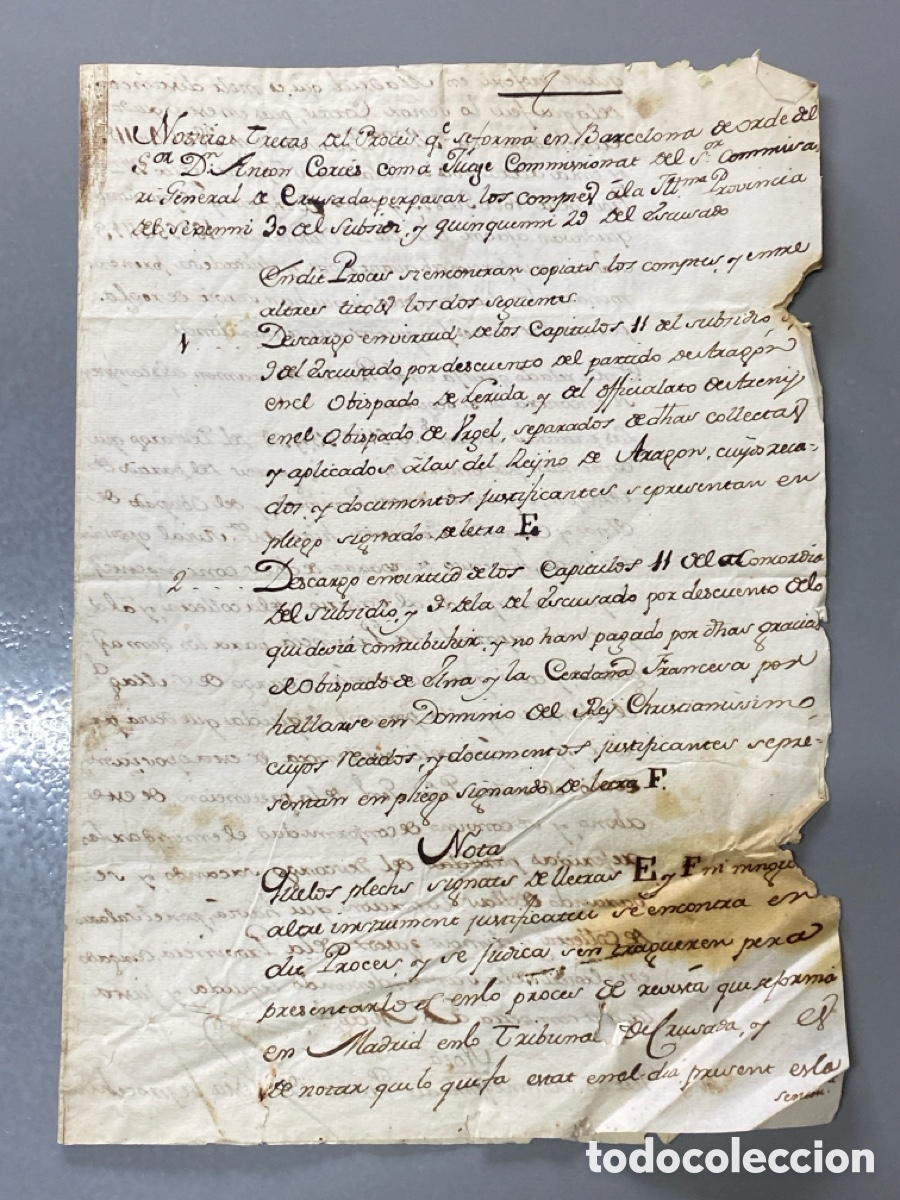 Noticias tretas del Proces q.e se formá en Barcelona de orde del
S.or D.r Anton Cortés com a Jutge Commissionat del S.or Commissa-
ri General de Crusada per pasar los comptes á la Ill.ma Provincia
del sexenni 30 del Subsidi, y quinquenni 29 del Escusado
En dit Proces si encontran copiats los comptes, y entre
altres titols los dos seguents.
1 Descargo en virtud de los Capitulos 11 del subsidio y
9 del Escusado por descuento del partido de Aragon
en el Obispado de Lerida, y del officialato de Areny
en el Obispado de Urgel, separados de dhas collectas
y aplicados á las del Reyno de Aragon, cuyos reca-
dos, y documentos justificantes se presentan en
pliego signado de letra E.
2 .... Descargo en virtud de los Capitulos 11 de la Concordia
del Subsidio, y 9 de la del Escusado por descuento de lo
qui devia contribuhir, y no han pagado por dhas gracias
el Obispado de Elna y la Cerdaña Francesa por
hallarse en Dominio del Rey Christianissimo
cuyos recados, y documentos justificantes se pre-
sentan en pliego signando de letra F.
Nota
Que los plechs signats de lletras E y F ni ningu
altre instrument justificatiu se encontra en
dit Proces, y se judica sen tragueren per a
presentarlo en lo proces de revista qui se formá
en Madrid en lo Tribunal de Crusada, y es
de notar que lo que fa estat en el dia present es la
senten.a
todocoleccion